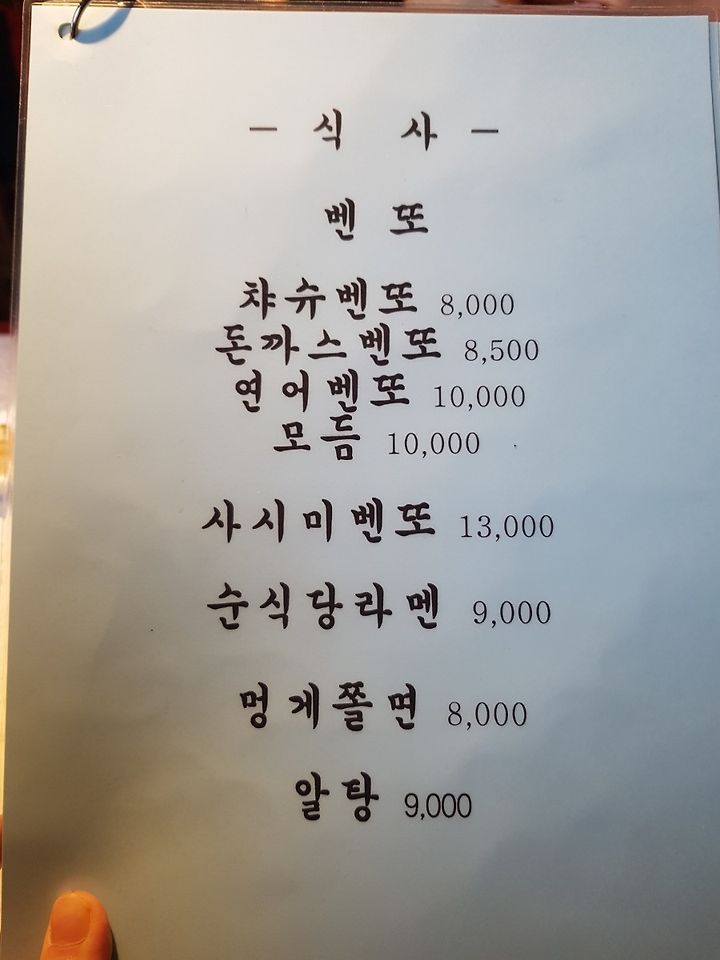 - 식 사 -
벤 또
챠슈벤또 8,000
돈까스벤또 8,500
연어벤또 10,000
모듬 10,000
사시미벤또 13,000
순식당라멘 9,000
멍게쫄면 8,000
알탕 9,000